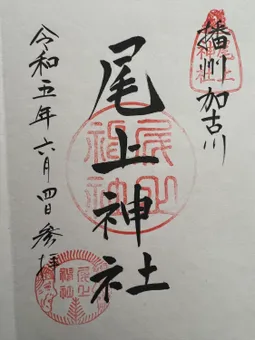 播州加古川
尾上神社
令和五年六月四日参拝
尾上
神社